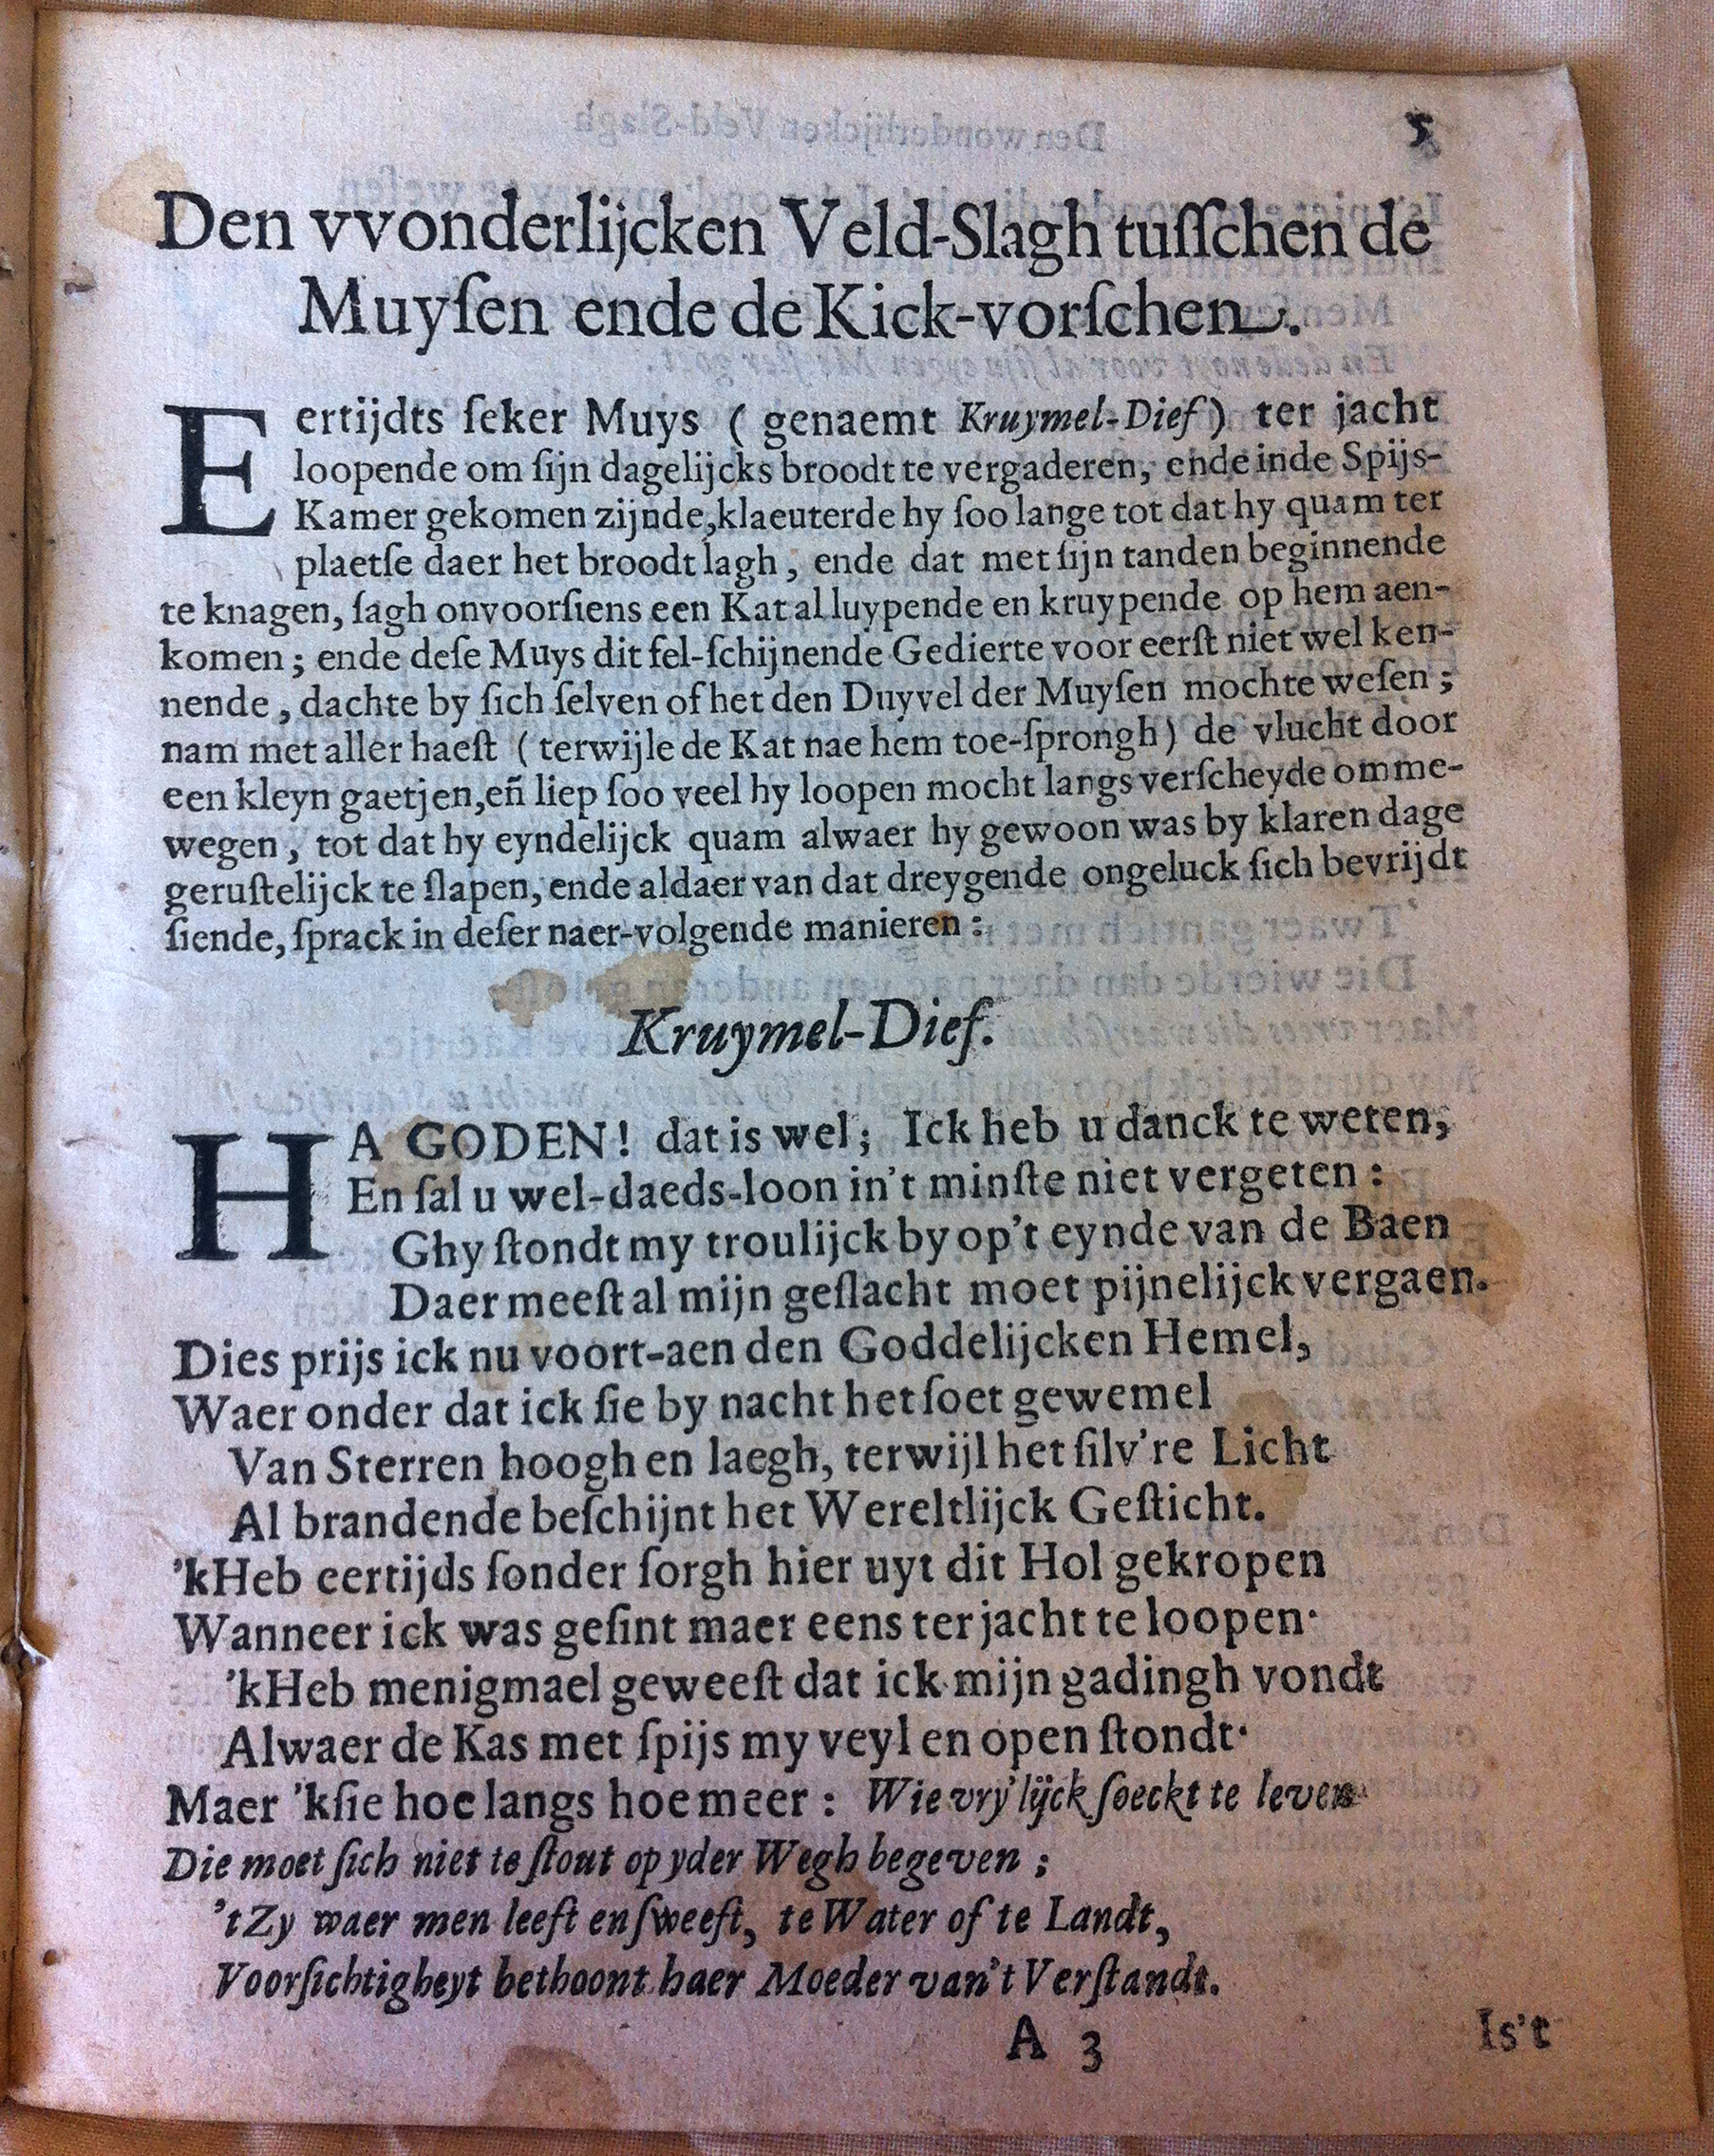 5
Den vvonderlijcken Veld-Slagh tuſſchen de
Muyſen ende de Kick-vorſchen.
Eertijdts ſeker Muys ( genaemt Kruymel-Dief ) ter jacht
loopende om ſijn dagelijcks broodt te vergaderen, ende inde Spijs-
Kamer gekomen zijnde,klaeuterde hy ſoo lange tot dat hy quam ter
plaetſe daer het broodt lagh , ende dat met ſijn tanden beginnende
te knagen, ſagh onvoorſiens een Kat al luypende en kruypende op hem aen-
komen ; ende deſe Muys dit fel-ſchijnende Gedierte voor eerſt niet wel ken-
nende , dachte by ſich ſelven of het den Duyvel der Muyſen mochte weſen ;
nam met aller haeſt ( terwijle de Kat nae hem toe-ſprongh ) de vlucht door
een kleyn gaetjen,eñ liep ſoo veel hy loopen mocht langs verſcheyde omme-
wegen , tot dat hy eyndelijck quam alwaer hy gewoon was by klaren dage
geruſtelijck te ſlapen, ende aldaer van dat dreygende ongeluck ſich bevrijdt
ſiende, ſprack in deſer naer-volgende manieren :
Kruymel-Dief.
HA GODEN! dat is wel; Ick heb u danck te weten,
En ſal u wel-daeds-loon in't minſte niet vergeten :
Ghy ſtondt my troulijck by op't eynde van de Baen
Daer meeſt al mijn geſlacht moet pijnelijck vergaen.
Dies prijs ick nu voort-aen den Goddelijcken Hemel,
Waer onder dat ick ſie by nacht het ſoet gewemel
Van Sterren hoogh en laegh, terwijl het ſilv're Licht
Al brandende beſchijnt het Wereltlijck Geſticht.
'kHeb eertijds ſonder ſorgh hier uyt dit Hol gekropen
Wanneer ick was geſint maer eens ter jacht te loopen·
'kHeb menigmael geweeſt dat ick mijn gadingh vondt
Alwaer de Kas met ſpijs my veyl en open ſtondt·
Maer 'kſie hoe langs hoe meer : Wie vry'lijck ſoeckt te leven
Die moet ſich niet te ſtout op yder Wegh begeven ;
'tZy waer men leeft en ſweeft, te Water of te Landt,
Voorſichtigheyt bethoont haer Moeder van't Verſtandt.
A 3
Is't